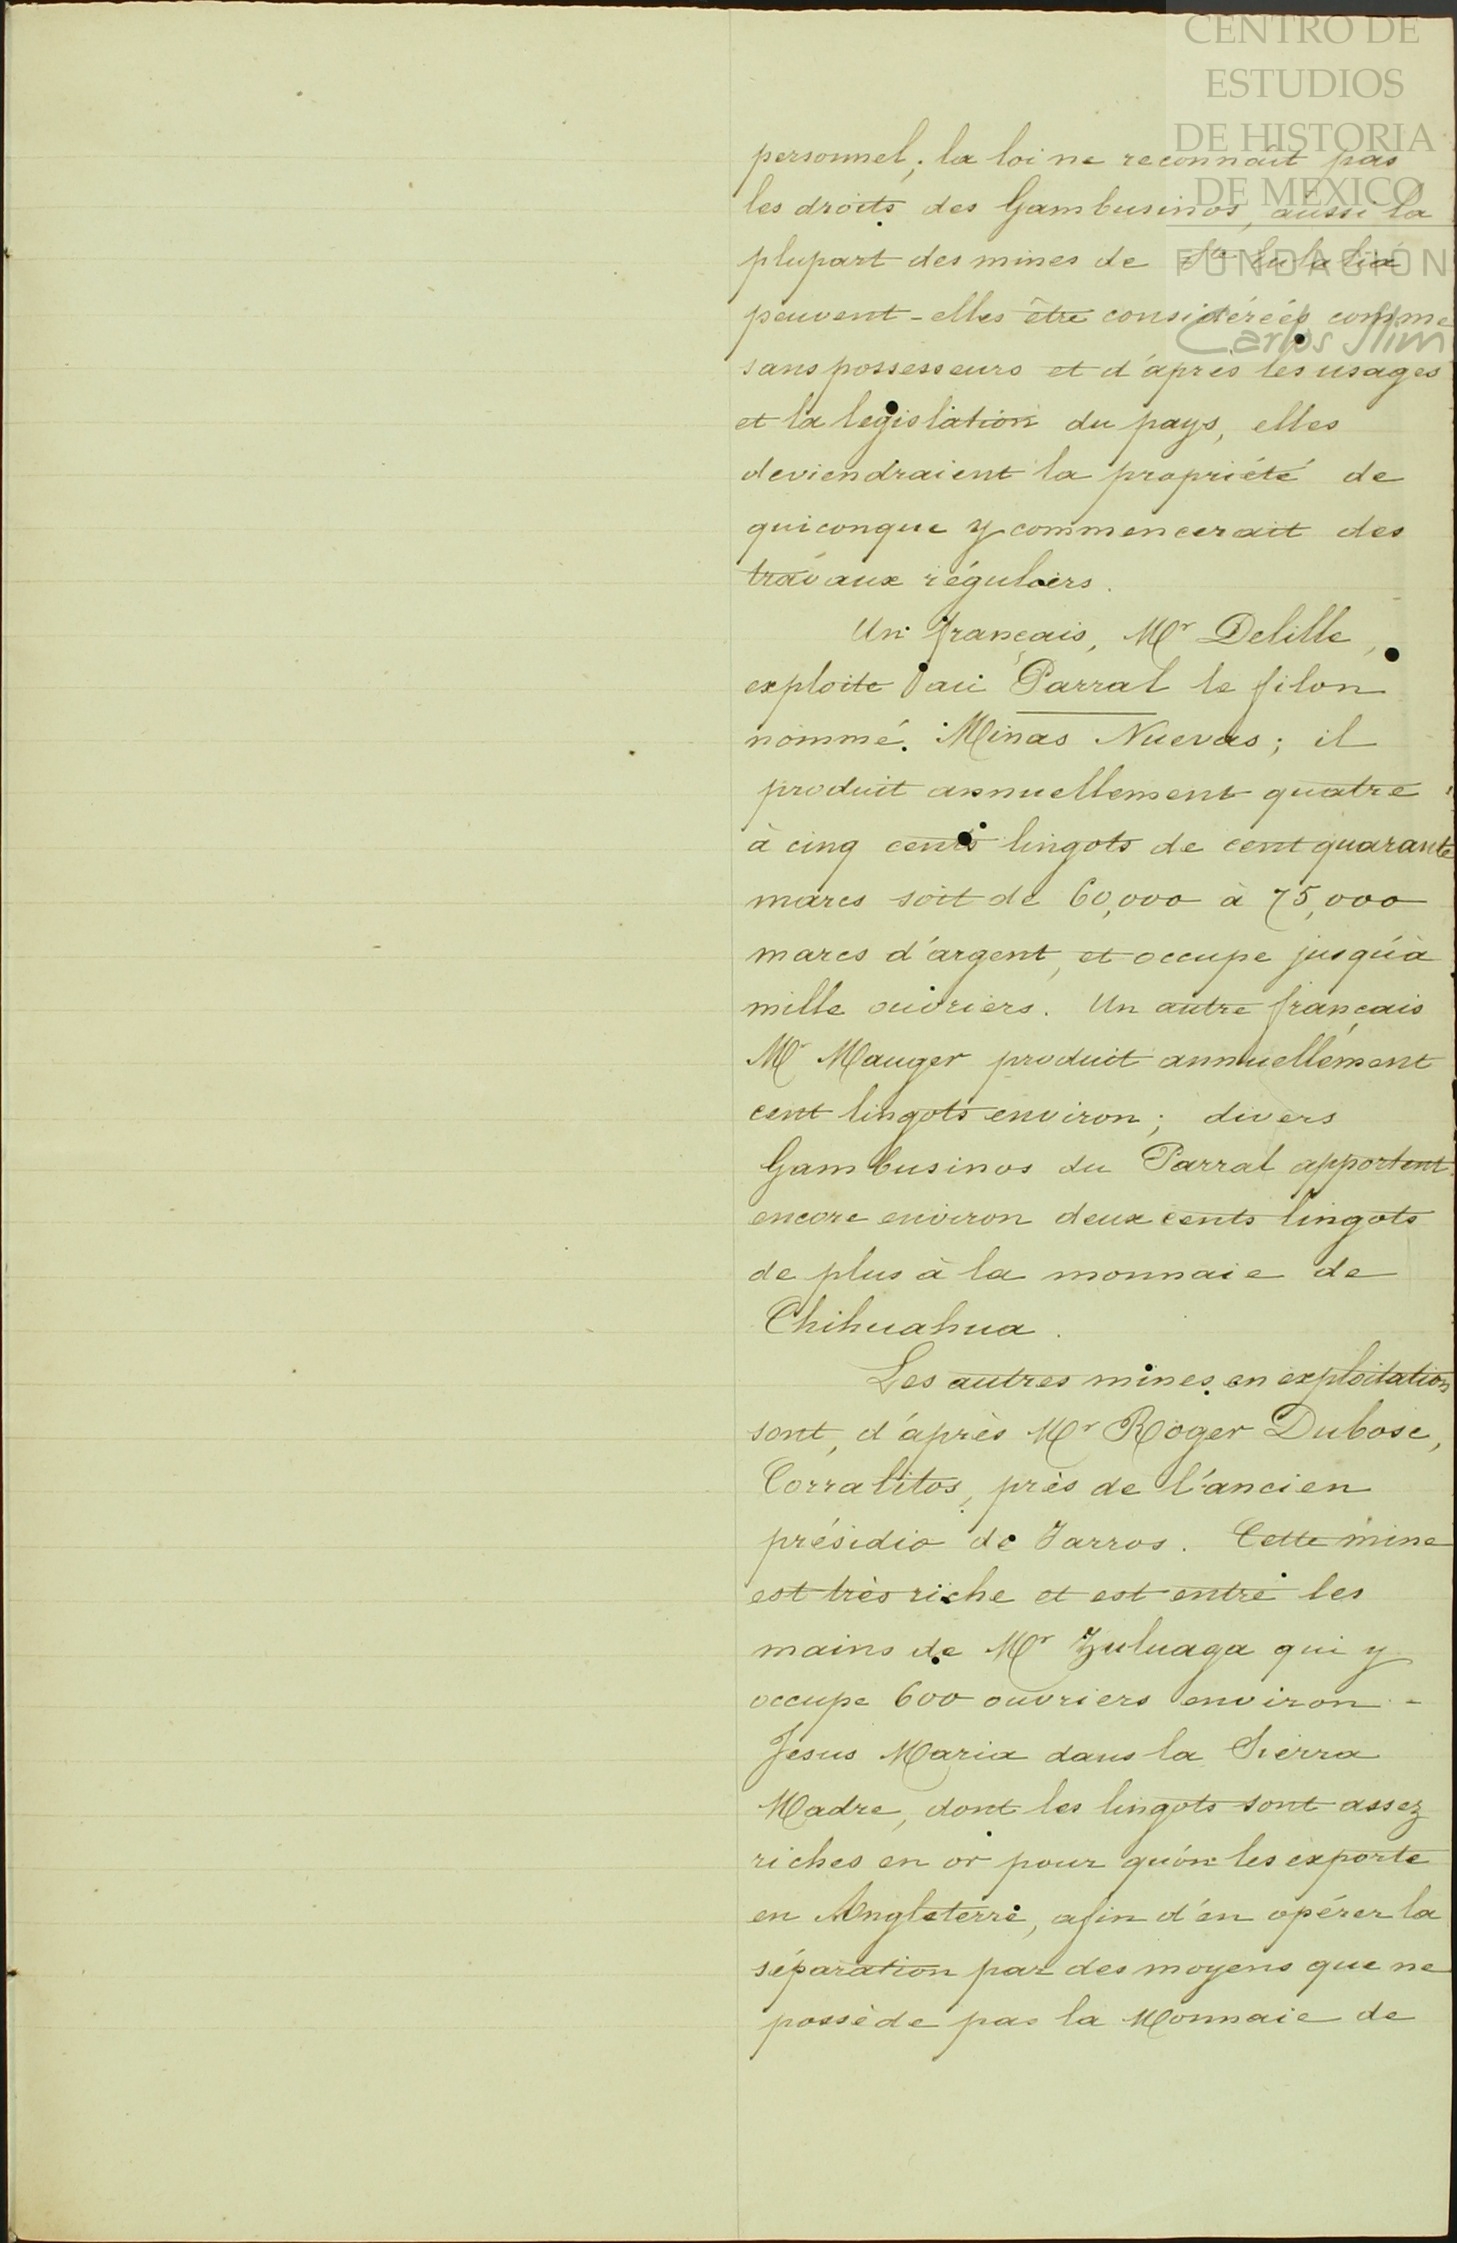 CENTRO DE
ESTUDIOS
DE HISTORIA
DE MEXICO
FUNDACIÓN
Carlos Slim
personnel; la loi ne reconnaît pas
les droits des Gambusinos, aussi la
plupart des mines de Ste Eulalia
peuvent-elles être considérées comme
sans possesseurs et d'après les usages
et la legislation du pays, elles
deviendraient la propriété de
quiconque y commencerait des
travaux réguliers.
Un français, Mr Delille,
exploite au Parral le filon
nommé Minas Nuevas; il
produit annuellement quatre
à cinq cents lingots de cent quarante
marcs soit de 60,000 à 75,000
marcs d'argent, et occupe jusqu'à
mille ouvriers. Un autre français
Mr Mauger produit annuellement
cent lingots environ; divers
Gambusinos du Parral apportent
encore environ deux cents lingots
de plus à la monnaie de
Chihuahua.
Les autres mines en exploitation
sont, d'après Mr Roger Dubosc,
Corralitos, près de l'ancien
présidio de Jarros. Cette mine
est très riche et est entre les
mains de Mr Zuluaga qui y
occupe 600 ouvriers environ -
Jesus Maria dans la Sierra
Madre, dont les lingots sont assez
riches en or pour qu'on les exporte
en Angleterre, afin d'en opérer la
séparation par des moyens que ne
possède pas la Monnaie de